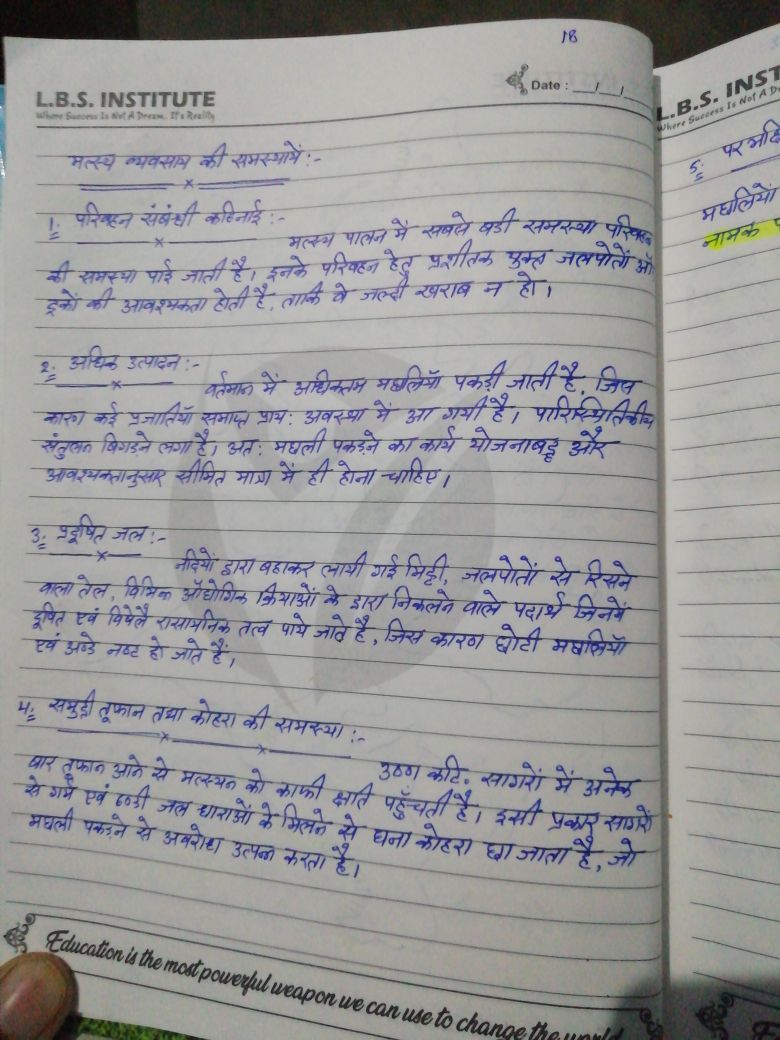 18
L.B.S. INSTITUTE
Where Success Is Not A Dream. It's Reality
Date : __/__/__
मत्स्य व्यवसाय की समस्यायें:-
1: परिवहन संबंधी कठिनाई :-
मत्स्य पालन में सबसे बडी समस्या परिवहन
की समस्या पाई जाती है। इनके परिवहन हेतु प्रशीतक युक्त जलपोतों औ
ट्रकों की आवश्यकता होती है, ताकि वे जल्दी खराब न हो।
2: अधिक उत्पादन:-
वर्तमान में अधिकतम मछलियाँ पकड़ी जाती है, जिस
कारण कई प्रजातियाँ समाप्त प्राय: अवस्था में आ गयी है। पारिस्थितिकीय
संतुलन बिगड़ने लगा है। अत: मछली पकड़ने का कार्य योजनाबद्ध और
आवश्यकतानुसार सीमित मात्रा में ही होना चाहिए।
3: प्रदूषित जल:-
नदियों द्वारा बहाकर लायी गई मिट्टी, जलपोतों से रिसने
वाला तेल, विभिन्न औद्योगिक क्रियाओं के द्वारा निकलने वाले पदार्थ जिनमें
दूषित एवं विषैले रासायनिक तत्व पाये जाते है, जिस कारण छोटी मछलियाँ
एवं अण्डे नष्ट हो जाते हैं।
4: समुद्री तूफान तथा कोहरा की समस्या:-
उष्ण कटि॰ सागरों में अनेक
बार तूफान आने से मत्स्यन को काफी क्षति पहुँचती है। इसी प्रकार सागरों
से गर्म एवं ठण्डी जल धाराओं के मिलने से घना कोहरा छा जाता है, जो
मछली पकड़ने से अवरोध उत्पन्न करता है।
Education is the most powerful weapon we can use to change the world
L.B.S. INST
Where Success Is Not A D
5:
मछलियों
नामक